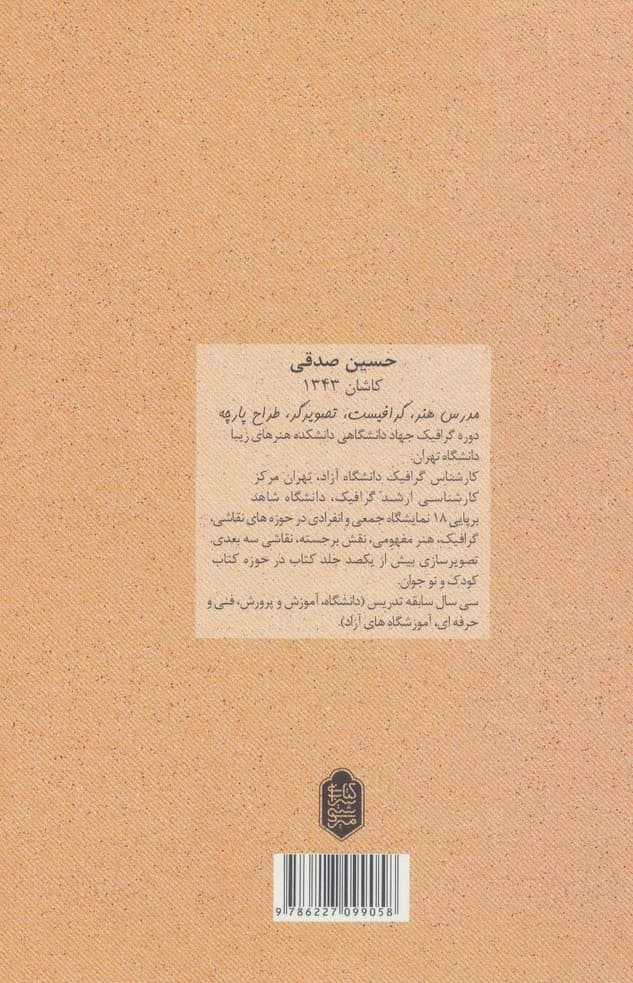 حسین صدقی
کاشان ۱۳۴۳
مدرس هنر، گرافیست، تصویرگر، طراح پارچه
دوره گرافیک جهاد دانشگاهی دانشکده هنرهای زیبا
دانشگاه تهران.
کارشناس گرافیک دانشگاه آزاد، تهران مرکز
کارشناسی ارشد گرافیک، دانشگاه شاهد
برپایی ۱۸ نمایشگاه جمعی و انفرادی در حوزه های نقاشی،
گرافیک، هنر مفهومی، نقش برجسته، نقاشی سه بعدی.
تصویرسازی بیش از یکصد جلد کتاب در حوزه کتاب
کودک و نو جوان.
سی سال سابقه تدریس (دانشگاه، آموزش و پرورش، فنی و
حرفه ای، آموزشگاه های آزاد).
9 786227 099058